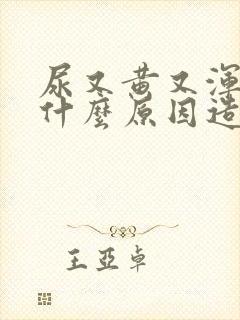 尿又黄又渾
什麼原因造
王亞卓